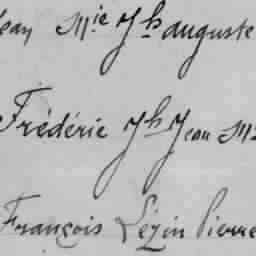 Jean Mie Jh auguste
Frédéric Jh Jean M
François Lézin Pierre